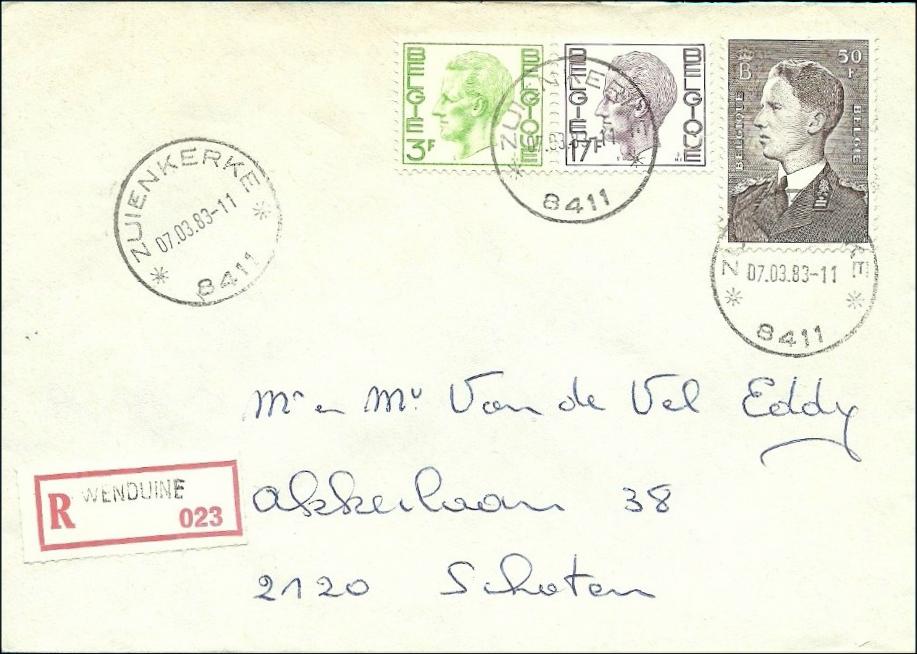 BELGIE BELGIQUE
3F
BELGIE BELGIQUE
17F
B 50 F
BELGIQUE BELGIE
ZUIENKERKE
07.03.83-11
8411
ZUIENKERKE
07.03.83-11
8411
ZUIENKERKE
07.03.83-11
8411
Mr en Mv Van de Vel Eddy
R WENDUINE
023
Akkerlaan 38
2120 Schoten